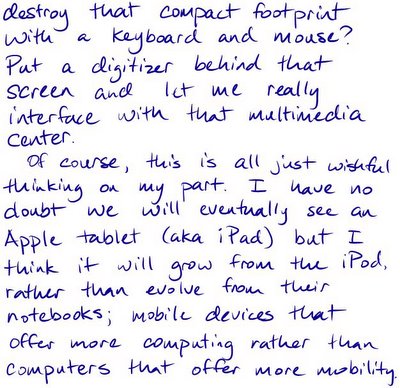 destroy that compact footprint
with a keyboard and mouse?
Put a digitizer behind that
screen and let me really
interface with that multimedia
center.
Of course, this is all just wishful
thinking on my part. I have no
doubt we will eventually see an
Apple tablet (aka iPad) but I
think it will grow from the iPod,
rather than evolve from their
notebooks; mobile devices that
offer more computing rather than
computers that offer more mobility.